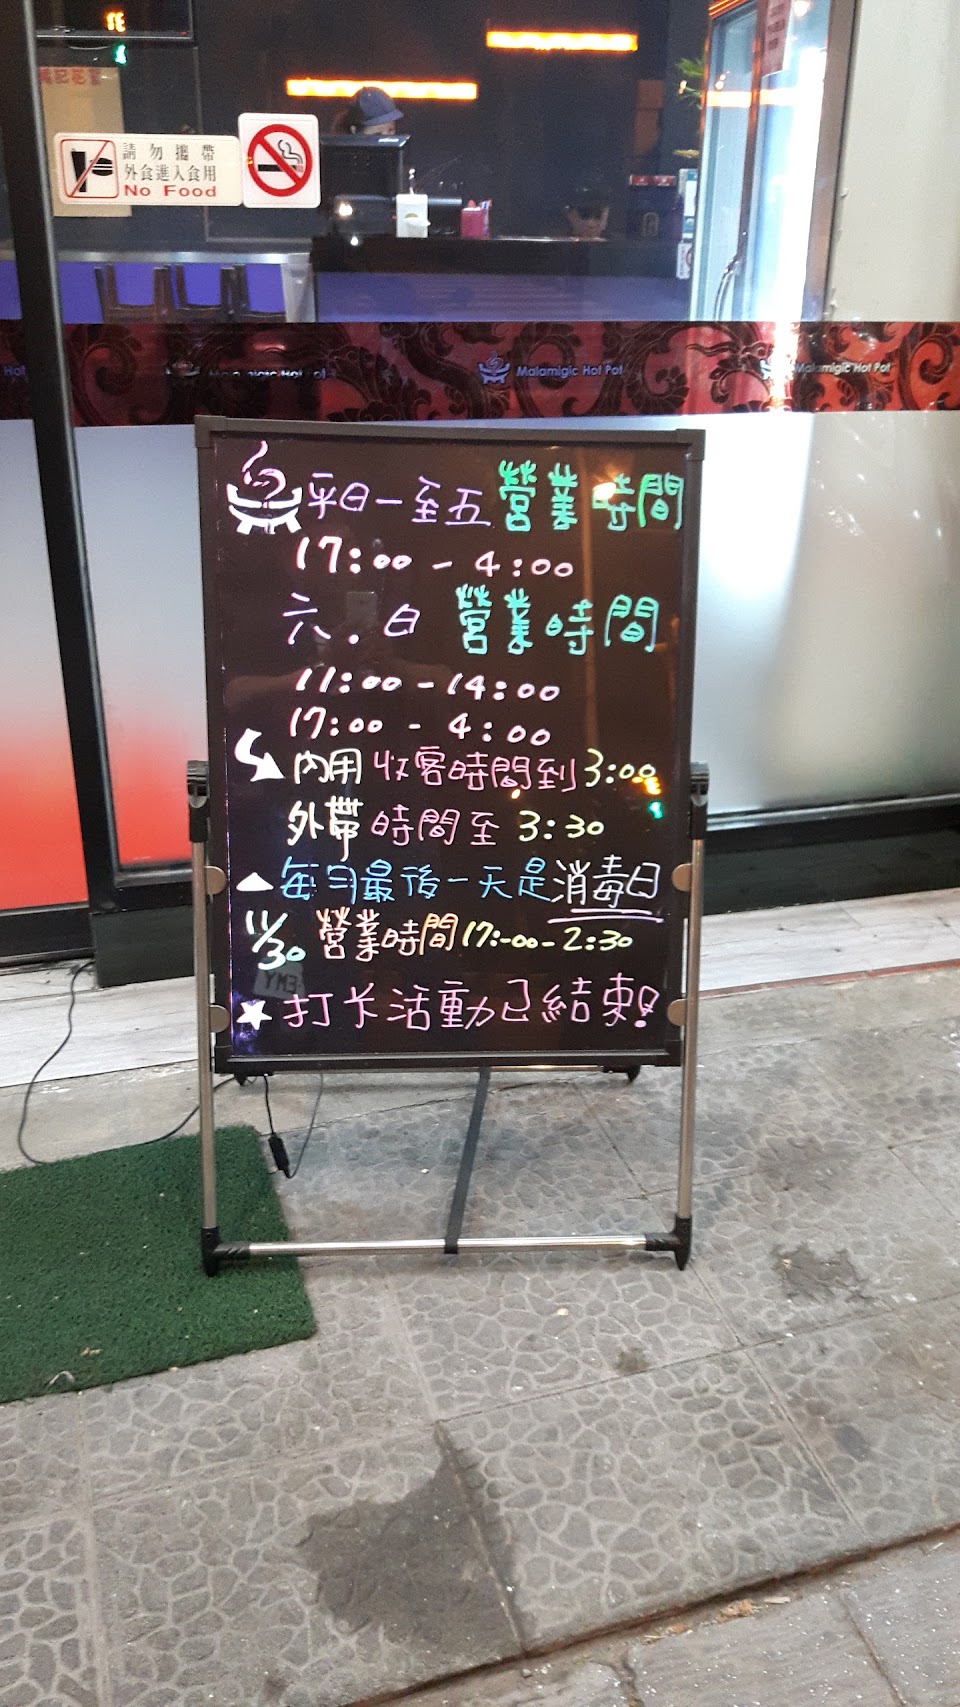 請勿攜帶
外食進入食用
No Food
Hot
Malamigic Hot Pot
Malamigic Hot Pot
Malamigic Hot Pot
平日一至五 營業時間
17:00 - 4:00
六.日 營業時間
11:00 - 14:00
17:00 - 4:00
內用 收客時間到 3:00
外帶 時間至 3:30
每月最後一天是消毒日
11/30 營業時間 17:00 - 2:30
打卡活動已結束!